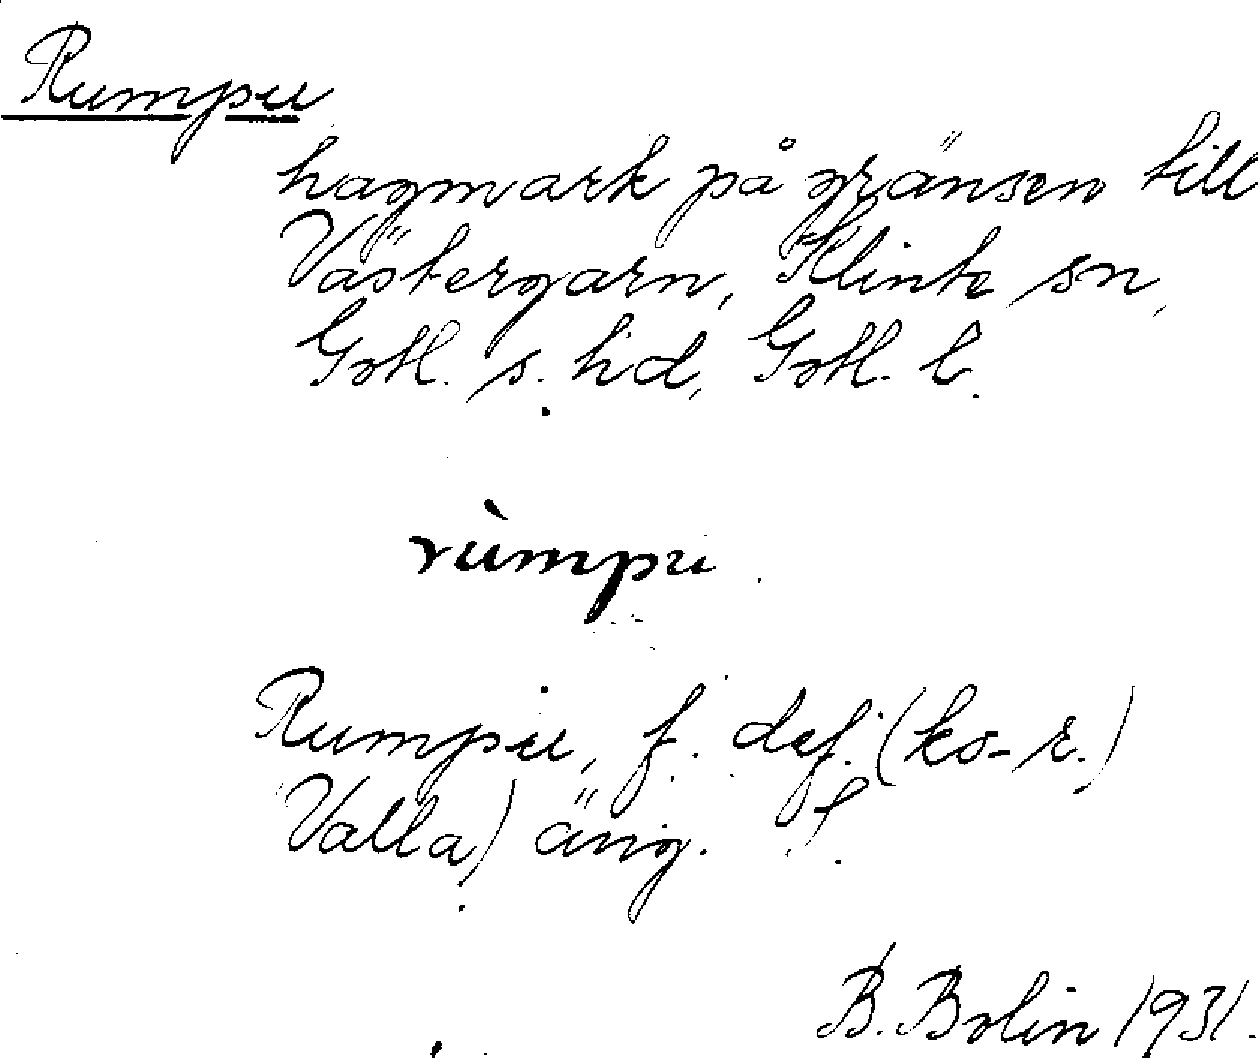 Rumpu
hagmark på gränsen till
Västergarn, Klinte sn,
Gotl. s. hd, Gotl. l.
rùmpu
Rumpu, f. def. (ko-r.)
Valla) äng.
B. Bolin 1931.